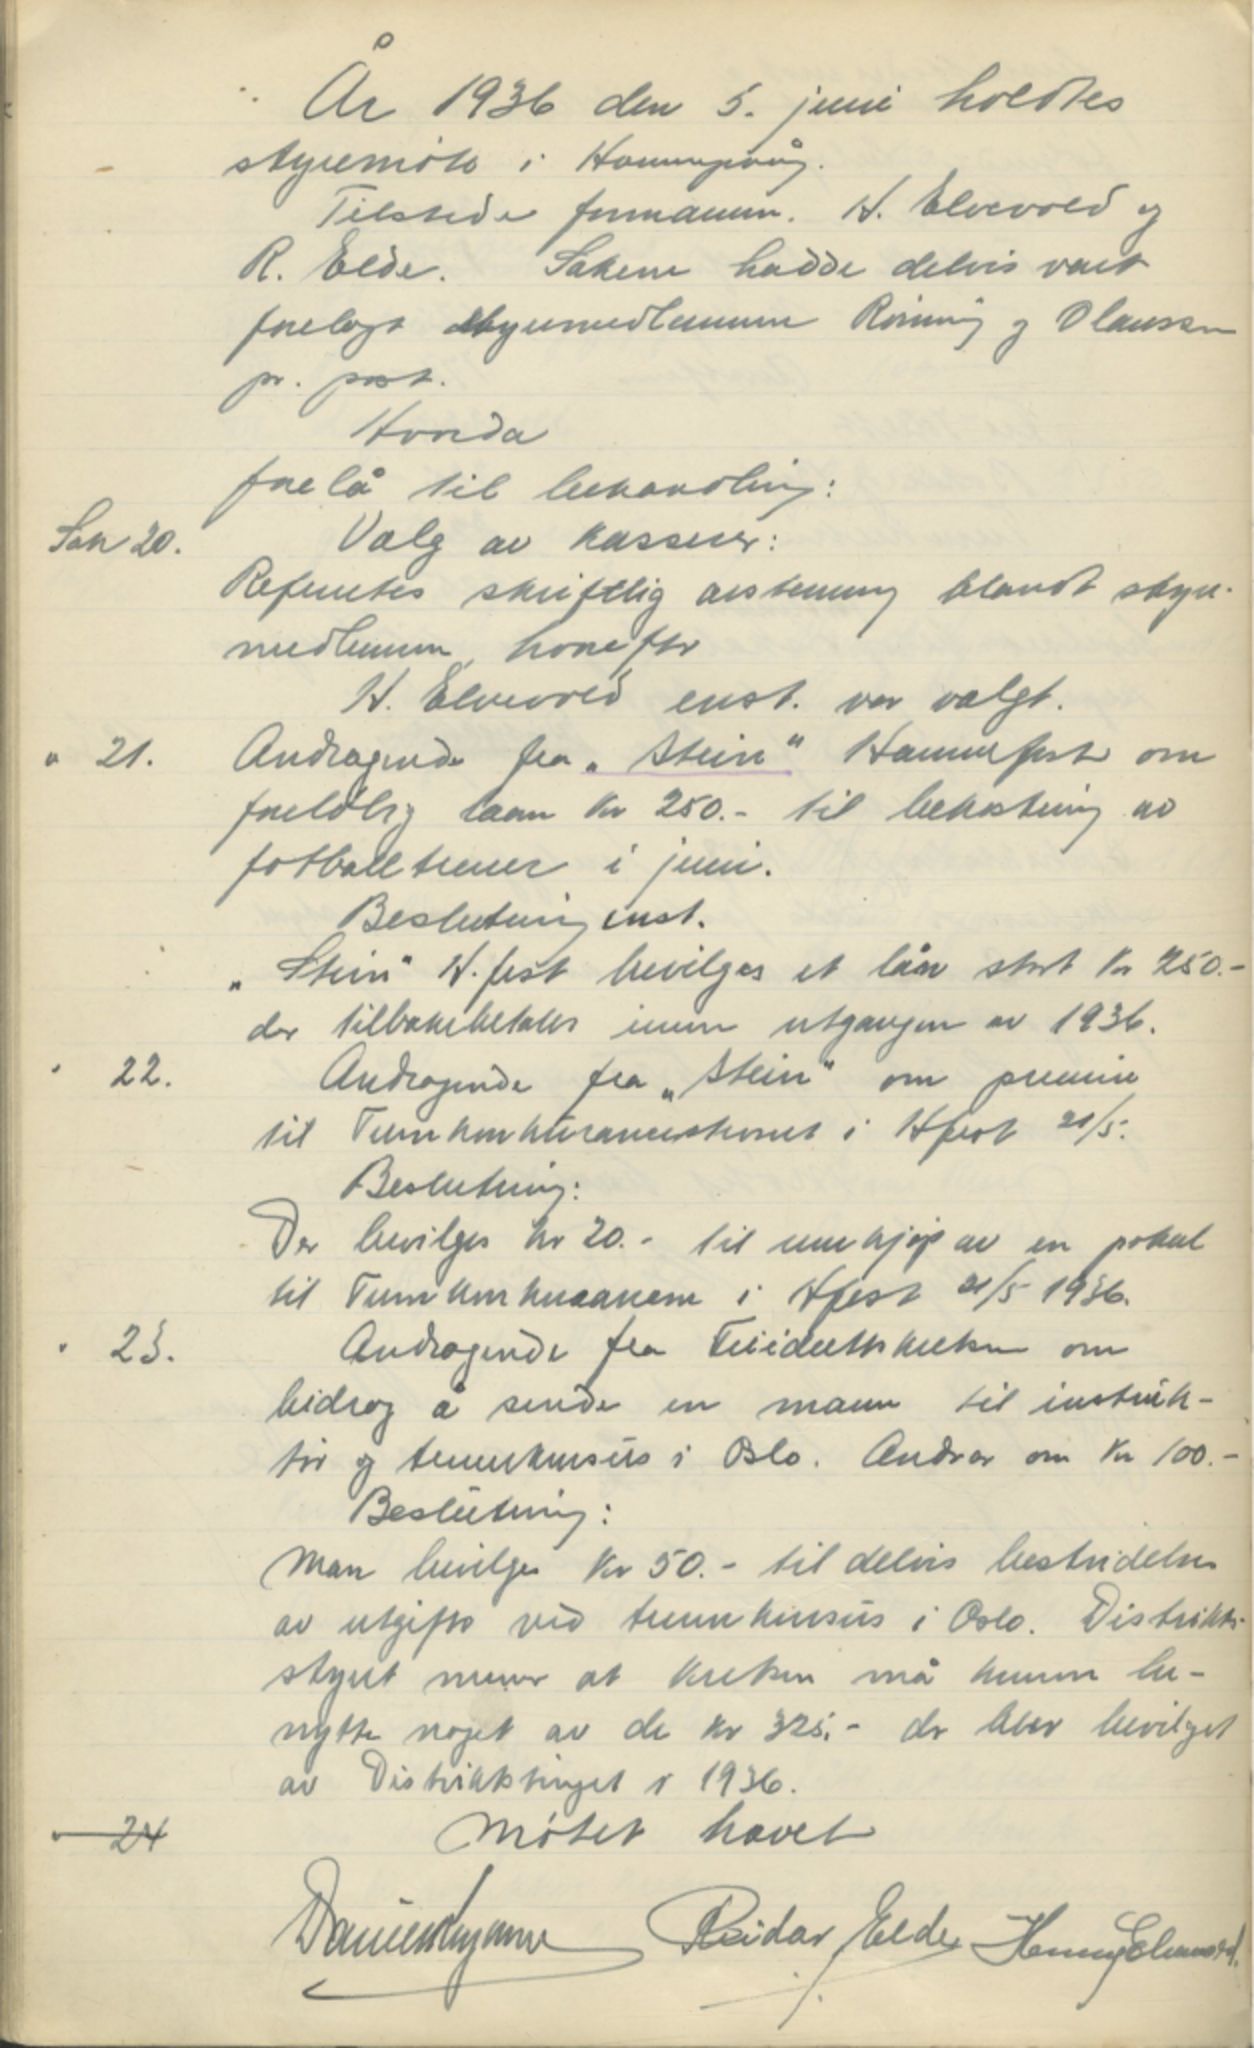 År 1936 den 5. juni holdtes
styremöte i Honningsvåg.
Tilstede formannen. H. Elvevold og
R. Elde. Sakene hadde delvis vært
forelagt styremedlemmene Röining og Olaussen
pr. post.
Hvorda
forelå til behandling:
Sak 20. Valg av kasserer:
Refertes skriftlig avstemning blandt styre-
medlemmene, horefter
H. Elvevold enst. var valgt.
" 21. Andragende fra „Stein" Hammerfest om
foreløbig laan kr 250.- til bekostning av
fotballtrener i juni.
Beslutning enst.
„Stein" H.fest bevilges et lån stort kr 250.-
der tilbakebetales innen utgangen av 1936.
" 22. Andragende fra „Stein" om premie
til Turnkonkurransestevnet i Hfest 21/5.
Beslutning:
Der bevilges kr 20.- til innkjøp av en pokal
til Turnkonkurransene i Hfest 21/5 1936.
" 23. Andragende fra Friidrettskretsen om
bidrag å sende en mann til instruk-
tör og trenerkursus i Oslo. Andrar om kr 100.-
Beslutning:
Man bevilger kr 50.- til delvis bestridelse
av utgifter ved trenerkursus i Oslo. Distrikts-
styret mener at kretsen må kunne be-
nytte noget av de kr 325.- der blev bevilget
av Distriktstinget i 1936.
24 Møtet hævet
Reidar Elde Henning Elvevold.